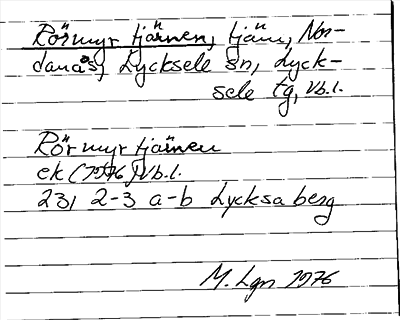 Rörmyrtjärnen, tjärn, Nor-
danås, Lycksele sn, Lyck-
sele tg, Vb.l.
Rörmyrtjärnen
ek (1976) Vb.l.
23I 2-3 a-b Lycksaberg
M. Lgn 1976